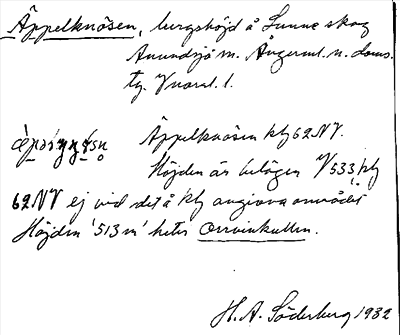 Äppelknösen, bergshöjd å Sunne skog
Anundsjö sn. Ångerml. n. doms.
tg. Vnorrl. l.
Äppelknösen kbl 62 NV.
Höjden är belägen V 533, kbl
62 NV ej vid det å kbl angivna området
Höjden '513 m' heter Orrvinkullen.
H. A. Söderberg 1932